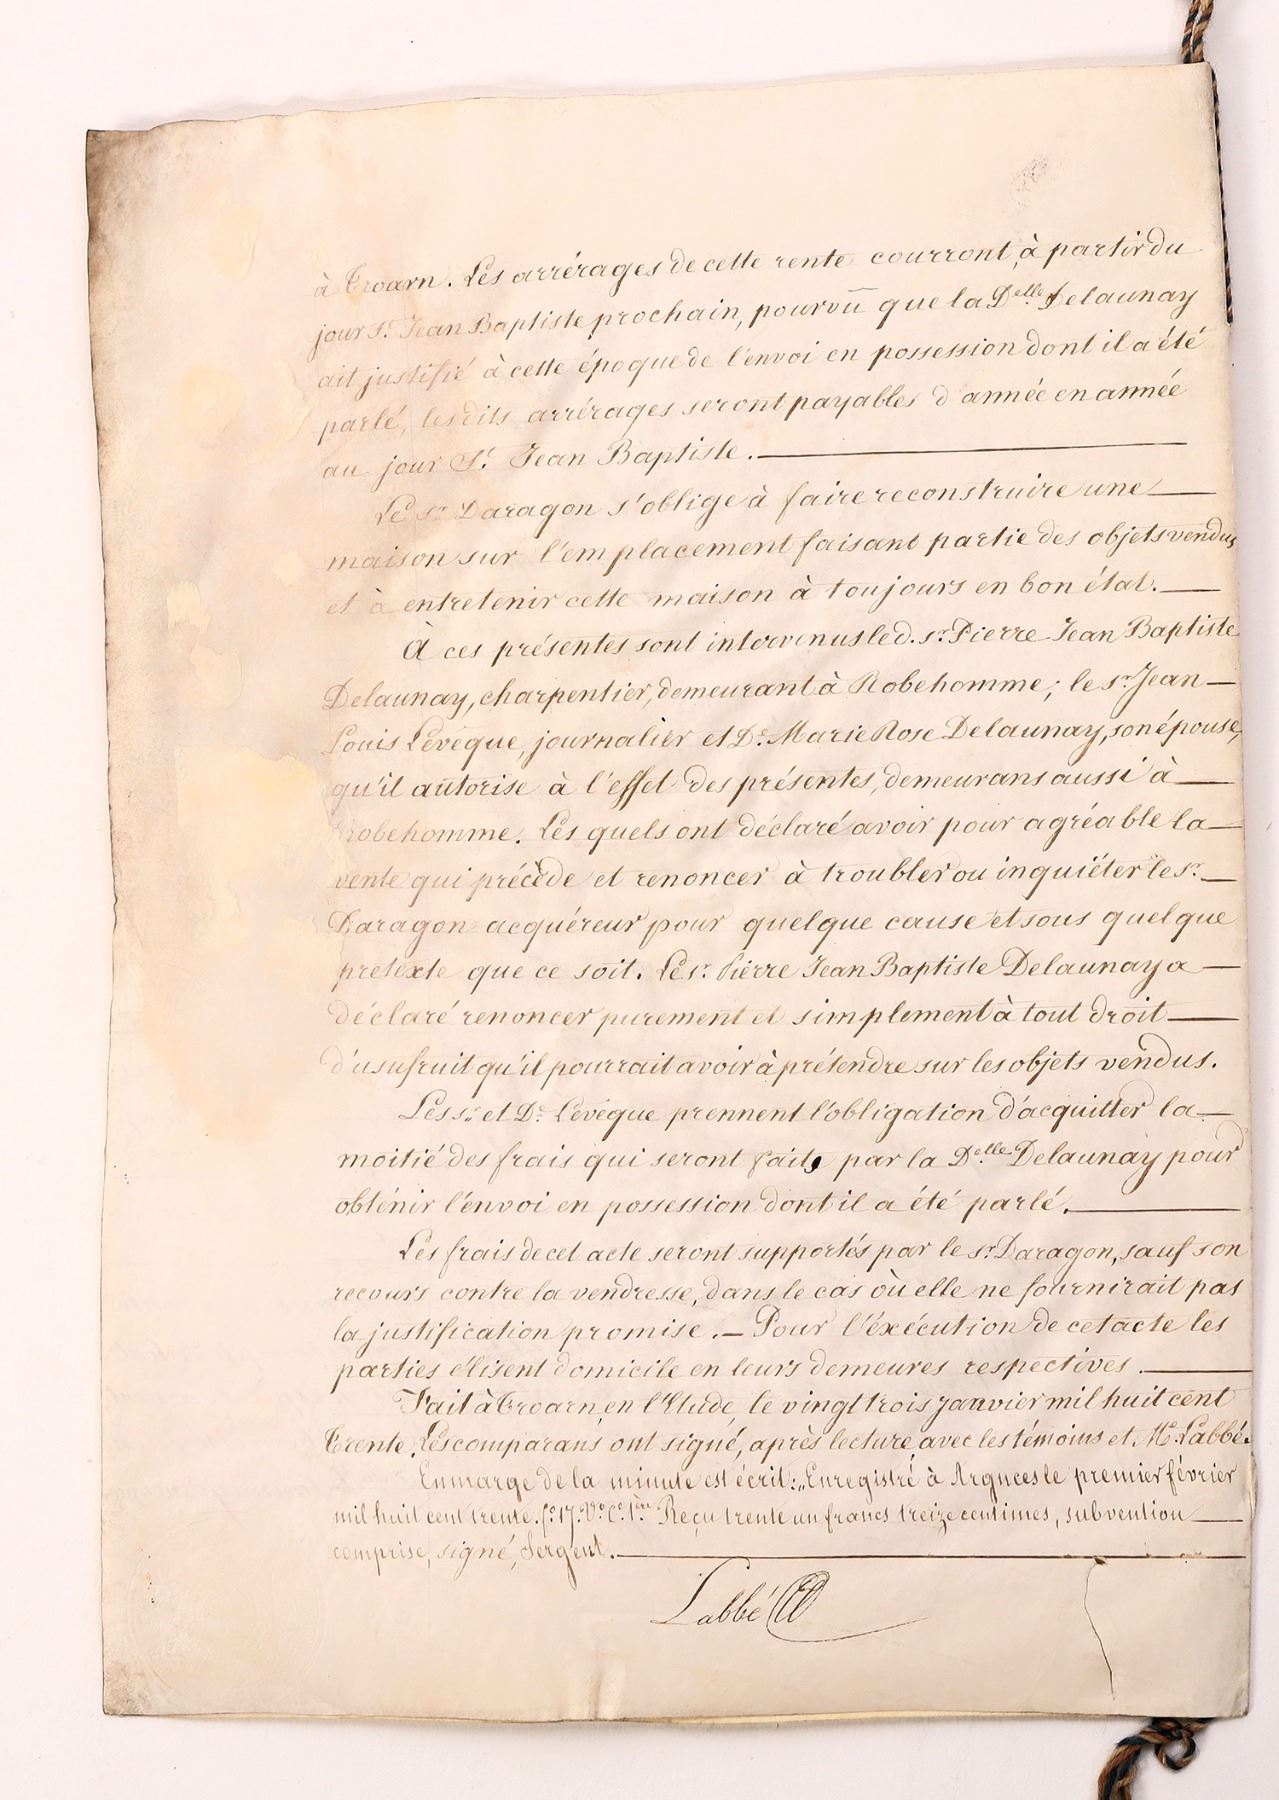 à Troarn. Les arrérages de cette rente courront, à partir du
jour St. Jean Baptiste prochain, pourvu que la Delle Delaunay
ait justifié à cette époque de l'envoi en possession dont il a été
parlé, lesdits arrérages seront payables d'année en année
au jour St. Jean Baptiste.
Le sr. Daragon s'oblige à faire reconstruire une
maison sur l'emplacement faisant partie des objets vendus
et à entretenir cette maison à toujours en bon état.
A ces présentes sont intervenus led. sr. Pierre Jean Baptiste
Delaunay, charpentier, demeurant à Robehomme; le sr. Jean
Louis Levêque, journalier et De. Marie Rose Delaunay, son épouse,
qu'il autorise à l'effet des présentes, demeurans aussi à
Robehomme. Les quels ont déclaré avoir pour agréable la
vente qui précède et renoncer à troubler ou inquiéter le sr.
Daragon acquéreur pour quelque cause et sous quelque
prétexte que ce soit. Le sr. Pierre Jean Baptiste Delaunay a
déclaré renoncer purement et simplement à tout droit
d'usufruit qu'il pourrait avoir à prétendre sur les objets vendus.
Les sr. et De. Levêque prennent l'obligation d'acquitter la
moitié des frais qui seront faits par la Delle Delaunay pour
obtenir l'envoi en possession dont il a été parlé.
Les frais de cet acte seront supportés par le sr. Daragon, sauf son
recours contre la vendresse, dans le cas où elle ne fournirait pas
la justification promise. — Pour l'éxécution de cet acte les
parties élisent domicile en leurs demeures respectives.
Fait à Troarn, en l'Etude, le vingt trois janvier mil huit cent
trente. Les comparans ont signé, après lecture, avec les témoins et Me. Labbé.
En marge de la minute est écrit: „Enregistré à Argnces le premier février
mil huit cent trente. fo. 17. Vo. Ce. 1ère Reçu trente un francs treize centimes, subvention
comprise, signé, Sergent.
Labbé